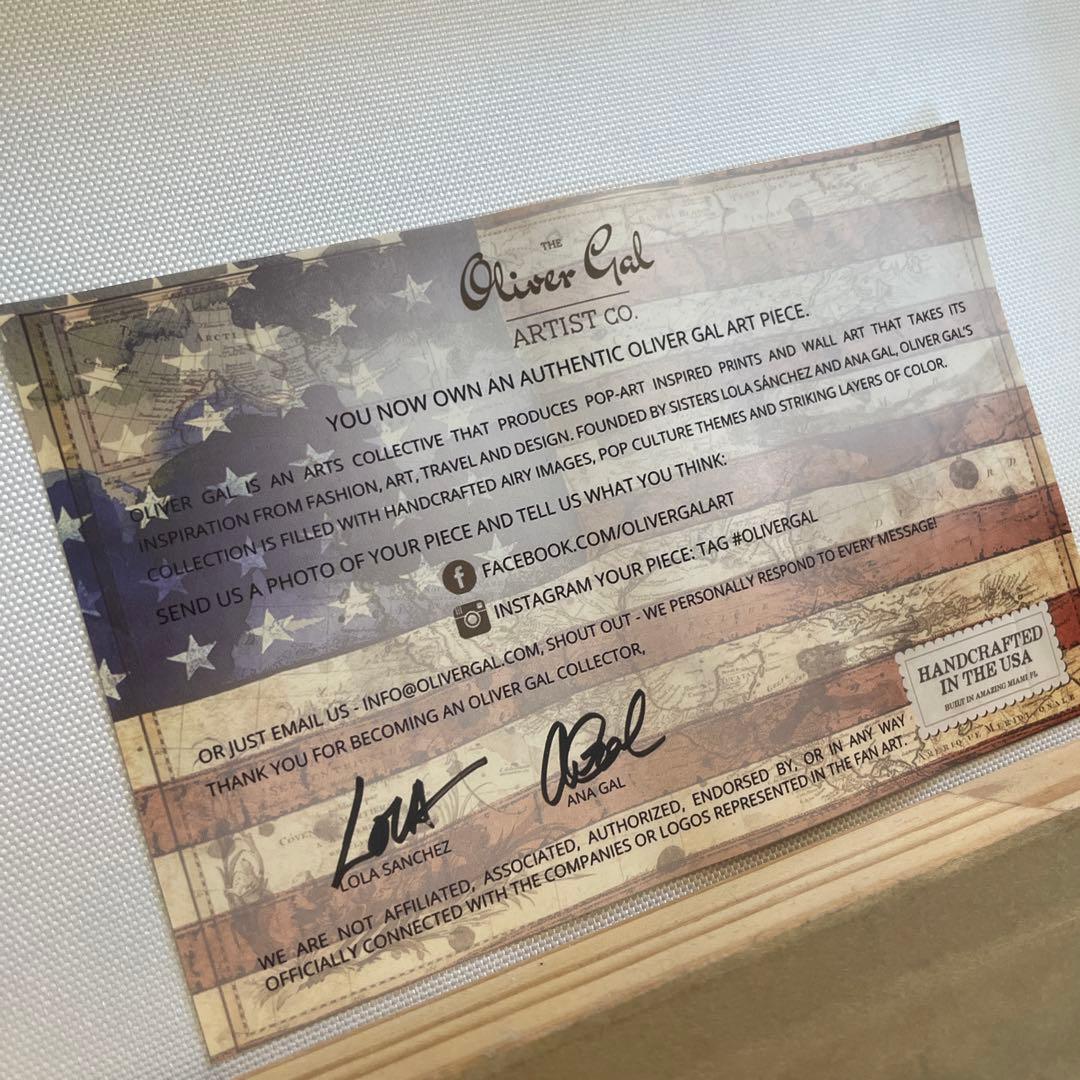 THE
Oliver Gal
ARTIST CO.
YOU NOW OWN AN AUTHENTIC OLIVER GAL ART PIECE.
OLIVER GAL IS AN ARTS COLLECTIVE THAT PRODUCES POP-ART INSPIRED PRINTS AND WALL ART THAT TAKES ITS
INSPIRATION FROM FASHION, ART, TRAVEL AND DESIGN. FOUNDED BY SISTERS LOLA SÁNCHEZ AND ANA GAL, OLIVER GAL'S
COLLECTION IS FILLED WITH HANDCRAFTED AIRY IMAGES, POP CULTURE THEMES AND STRIKING LAYERS OF COLOR.
SEND US A PHOTO OF YOUR PIECE AND TELL US WHAT YOU THINK:
f FACEBOOK.COM/OLIVERGALART
INSTAGRAM YOUR PIECE: TAG #OLIVERGAL
OR JUST EMAIL US - INFO@OLIVERGAL.COM, SHOUT OUT - WE PERSONALLY RESPOND TO EVERY MESSAGE!
THANK YOU FOR BECOMING AN OLIVER GAL COLLECTOR,
HANDCRAFTED
IN THE USA
BUILT IN AMAZING MIAMI FL
LOLA
LOLA SANCHEZ
ANA GAL
WE ARE NOT AFFILIATED, ASSOCIATED, AUTHORIZED, ENDORSED BY, OR IN ANY WAY
OFFICIALLY CONNECTED WITH THE COMPANIES OR LOGOS REPRESENTED IN THE FAN ART.
AMERIQUE MERIDIONALE
ARCTI